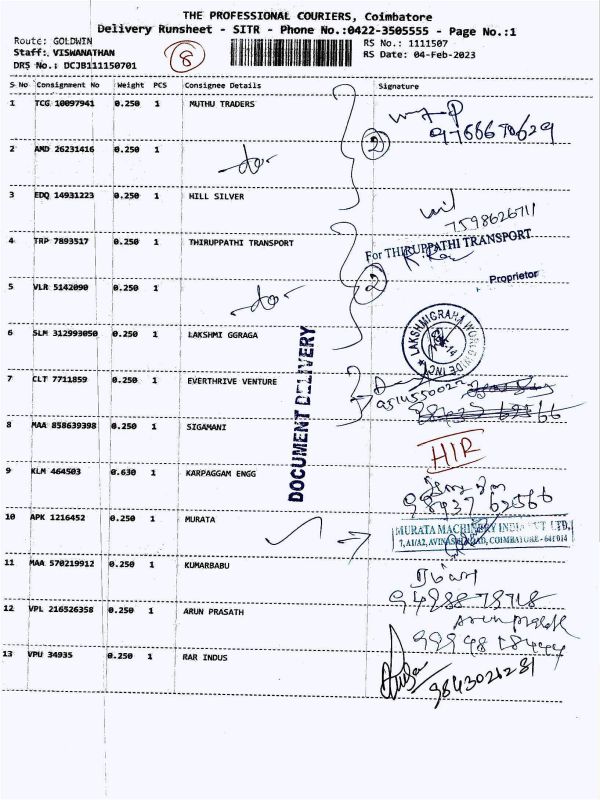 THE PROFESSIONAL COURIERS, Coimbatore
Delivery Runsheet - SITR - Phone No.:0422-3505555 - Page No.:1
Route: GOLDWIN
Staff: VISWANATHAN
DRS No.: DCJB111150701
8
RS No.: 1111507
RS Date: 04-Feb-2023
S No Consignment No Weight PCS Consignee Details Signature
1 TCG 10097941 0.250 1 MUTHU TRADERS
2
2 AMD 26231416 0.250 1 -do-
3 EDQ 14931223 0.250 1 HILL SILVER
7598626711
4 TRP 7893517 0.250 1 THIRUPPATHI TRANSPORT
For THIRUPPATHI TRANSPORT
Proprietor
2
5 VLR 5142090 0.250 1 -do-
6 SLM 312993050 0.250 1 LAKSHMI GGRAGA
LAKSHMIGRAHA WORLDWIDE INC
7 CLT 7711859 0.250 1 EVERTHRIVE VENTURE
DOCUMENT DELIVERY
8 MAA 858639398 0.250 1 SIGAMANI
9 KLM 464503 0.630 1 KARPAGGAM ENGG
98937 62566
10 APK 1216452 0.250 1 MURATA
MURATA MACHINERY INDIA PVT LTD.
7, A1/A2, AVINASHI ROAD, COIMBATORE - 641 014
11 MAA 570219912 0.250 1 KUMARBABU
12 VPL 216526358 0.250 1 ARUN PRASATH
Arun prasath
13 VPU 34935 0.250 1 RAR INDUS
9843021281